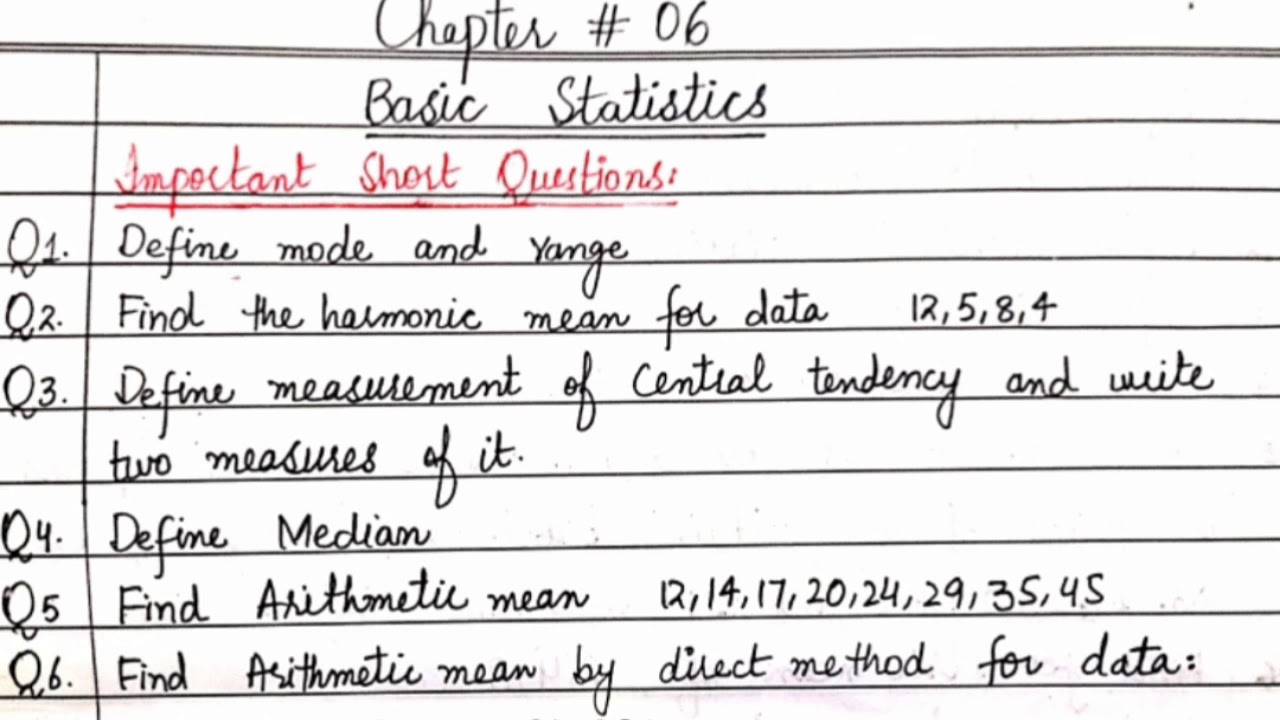 Chapter # 06
Basic Statistics
Important Short Questions:
Q1. Define mode and range
Q2. Find the harmonic mean for data 12,5,8,4
Q3. Define measurement of Central tendency and write
two measures of it.
Q4. Define Median
Q5 Find Arithmetic mean 12,14,17,20,24,29,35,45
Q6. Find Arithmetic mean by direct method for data: